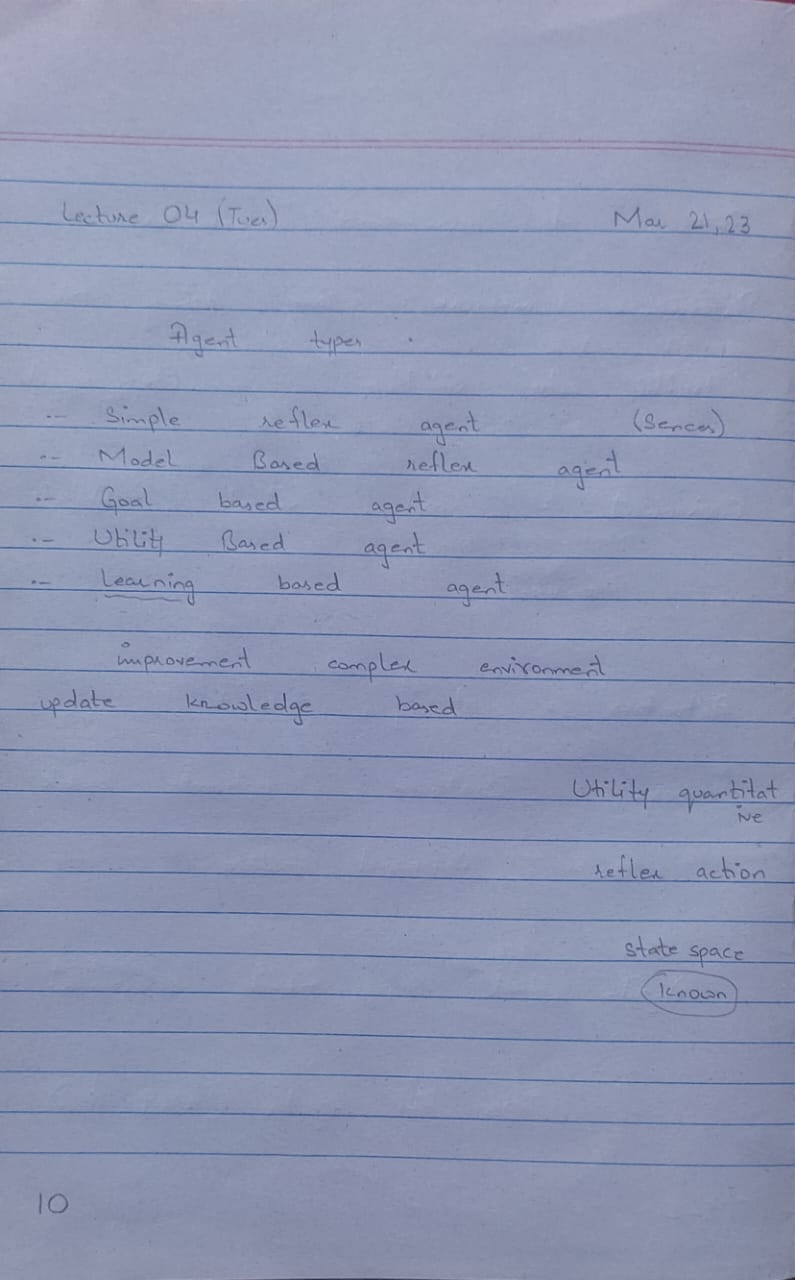 Lecture 04 (Tues) Mar 21, 23
Agent types .
.-- Simple reflex agent (Sences)
.-- Model Based reflex agent
.-- Goal based agent
.-- Utility Based agent
.-- Learning based agent
improvement complex environment
update knowledge based
Utility quantitat
ive
reflex action
state space
known
10